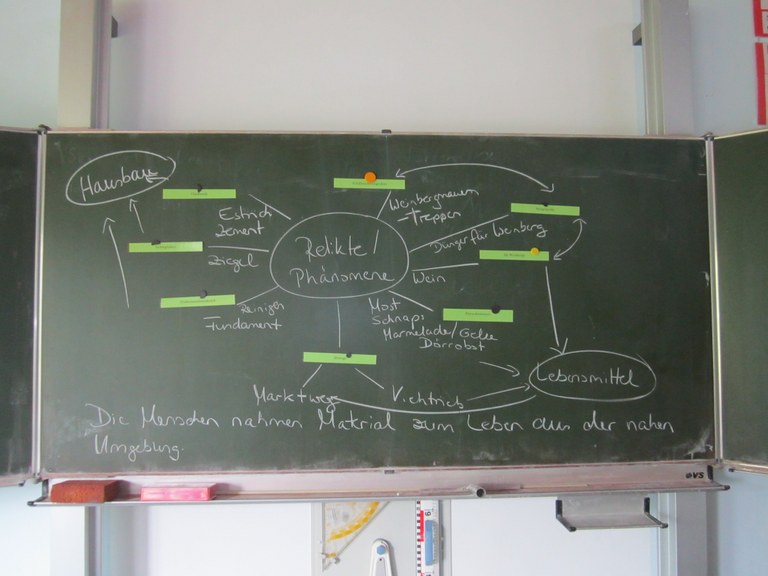 Hausbau
Estrich
Zement
Ziegel
Reiniger
Fundament
Relikte/
Phänomene
Weinbergmauern
-Treppen
Dünger für Weinberg
Wein
Most
Schnaps
Marmelade/Gelee
Dörrobst
Marktwege
Viehtrieb
Lebensmittel
Die Menschen nahmen Material zum Leben aus der nahen
Umgebung.
VS